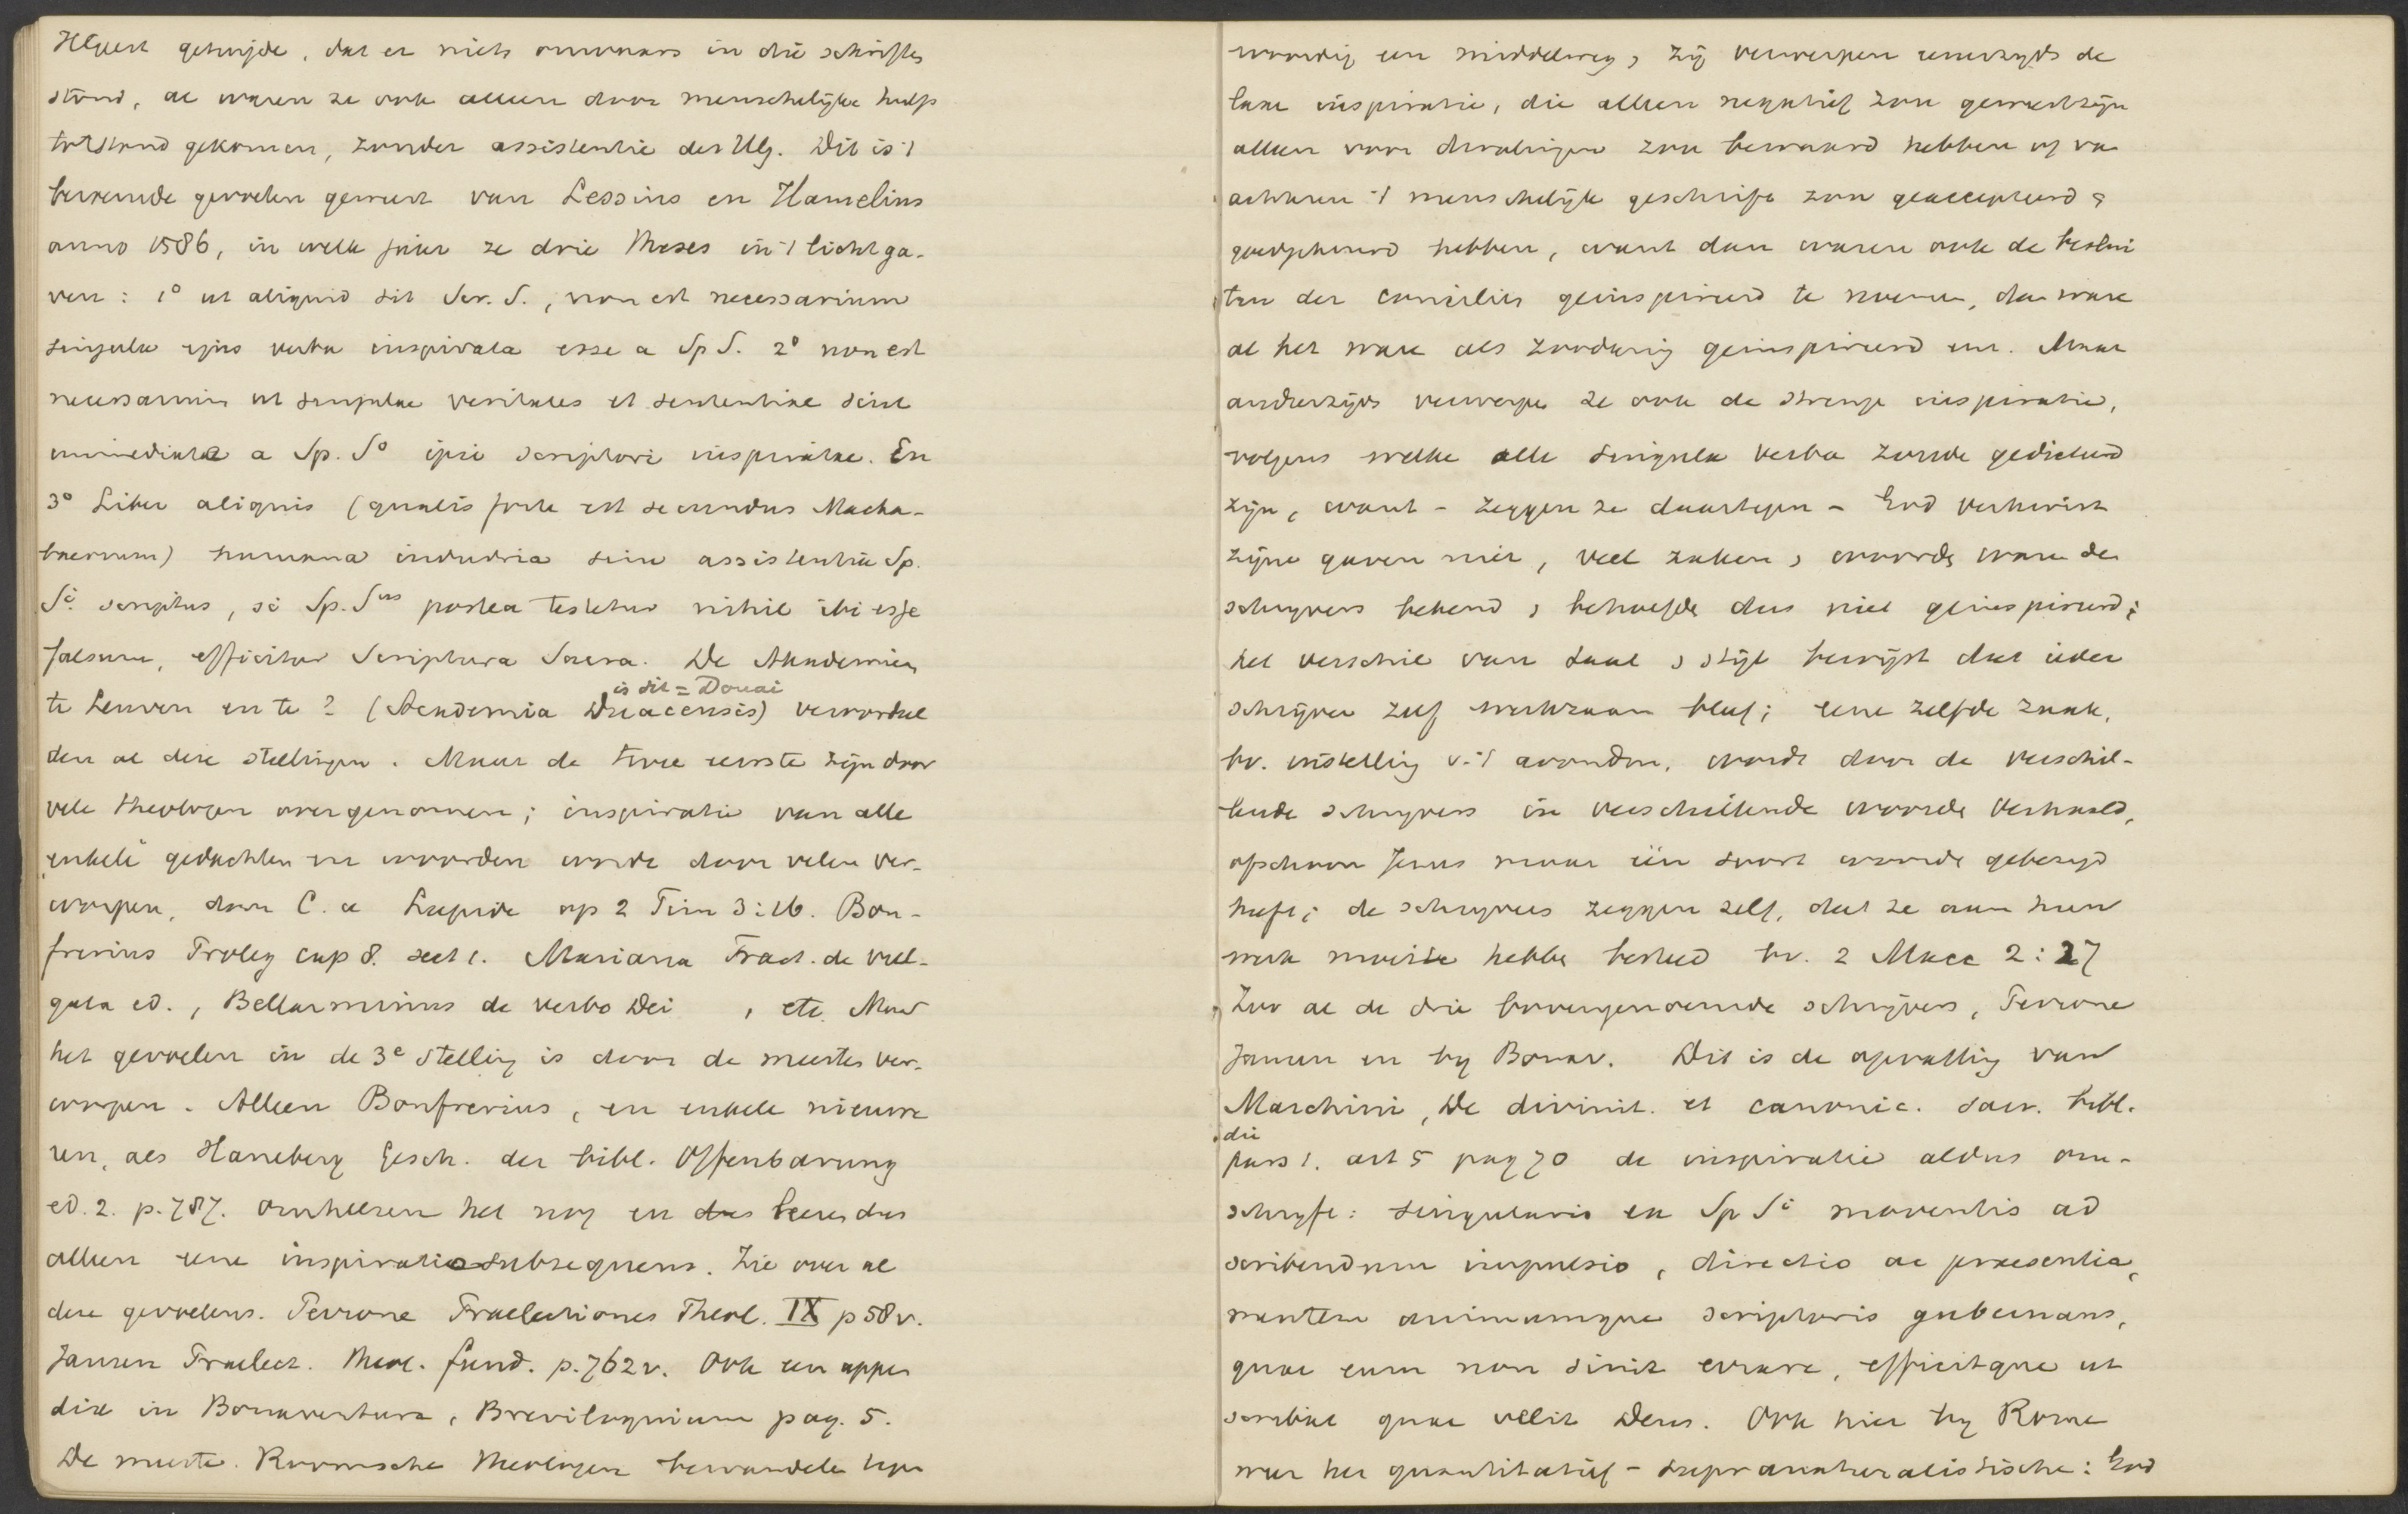 HGeest getuijde, dat er niets onwaars in die schriften
stond, al waren ze ook alleen door menschelijke hulp
totstand gekomen, zonder assistentie des HG. Dit is 't
beroemde gevoelen geweest van Lessius en Hamelius
anno 1586, in welk jaar ze drie theses in 't licht ga-
ven: 1° ut aliquid sit Scr. S., non est necessarium
singula ejus verba inspirata esse a Sp S. 2° non est
necessarium ut singulae veritates et sententiae sint
immediate a Sp. S° ipsi scriptori inspiratae. En
3° Liber aliquis (qualis forte est secundus Macha-
baeorum) humana industria sine assistentia Sp.
Si. scriptus, si Sp. Sus postea testetur nihil ibi esse
falsum, efficitur Scriptura Sacra. De Akademien
is dit = Douai
te Leuven en te ? (Academia Duacensis) veroordeel
den al deze stellingen. Maar de twee eerste zijn door
vele theologen overgenomen; inspiratie van alle
enkele gedachten en woorden wordt door velen ver-
worpen, door C. a Lapide op 2 Tim 3:16. Bon-
frerius Proleg cap 8. sect 1. Mariana Tract. de vul-
gata ed., Bellarminus de verbo Dei , etc. Maar
het gevoelen in de 3e stelling is door de meesten ver-
worpen. Alleen Bonfrerius, en enkele nieuwe
ren, als Haneberg Gesch. der bibl. Offenbarung
ed. 2. p. 787. omhelzen het nog en dus leeren dus
alleen eene inspiratio subsequens. Zie over al
deze gevoelens. Perrone Praelectiones Theol. IX p 58v.
Jansen Praelect. theol. fund. p. 762v. Ook een appen
dix in Bonaventura, Breviloquium pag. 5.
De meeste Roomsche theologen bewandelen tegen
woordig een middelweg, zij verwerpen eenerzijds de
laxe inspiratie, die alleen negatief zou gewerkt zijn
alleen voor dwalingen zou bewaard hebben of van
achteren 't menschelijk geschrift zou geaccepteerd &
goedgekeurd hebben, want dan waren ook de beslui
ten der conciliën geinspireerd te noemen, dan ware
al het ware als zoodanig geinspireerd enz. Maar
anderzijds verwerpen ze ook de strenge inspiratie,
volgens welke alle singula verba zouden gedicteerd
zijn, want - zeggen ze daartegen - God verkwist
zijne gaven niet, veel zaken & woorden waren den
schrijvers bekend & behoefden dus niet geinspireerd;
het verschil van taal & stijl bewijst dat ieder
schrijver zelf werkzaam bleef; eene zelfde zaak,
bv. instelling v. 't avondm. wordt door de verschil-
lende schrijvers in verschillende woorden verhaald,
ofschoon Jezus maar één soort woorden gebezigd
heeft; de schrijvers zeggen zelf, dat ze aan hun
werk moeite hebben besteed bv. 2 Macc 2:27
Zoo al de drie bovengenoemde schrijvers, Perrone
Jansen en bij Bonav. Dit is de opvatting van
Marchini, De divinit. et canonic. sacr. bibl.
die
pars 1. art 5 pag 70 de inspiratie aldus om-
schrijft: singularis en Sp Si moventis ad
scribendum impulsio, directio ac praesentia,
mentem animumque scriptoris gubernans,
quae eum non sinit errare, efficitque ut
scribat quae velit Deus. Ook hier bij Rome
weer het quantitatief - supranaturalistische: God